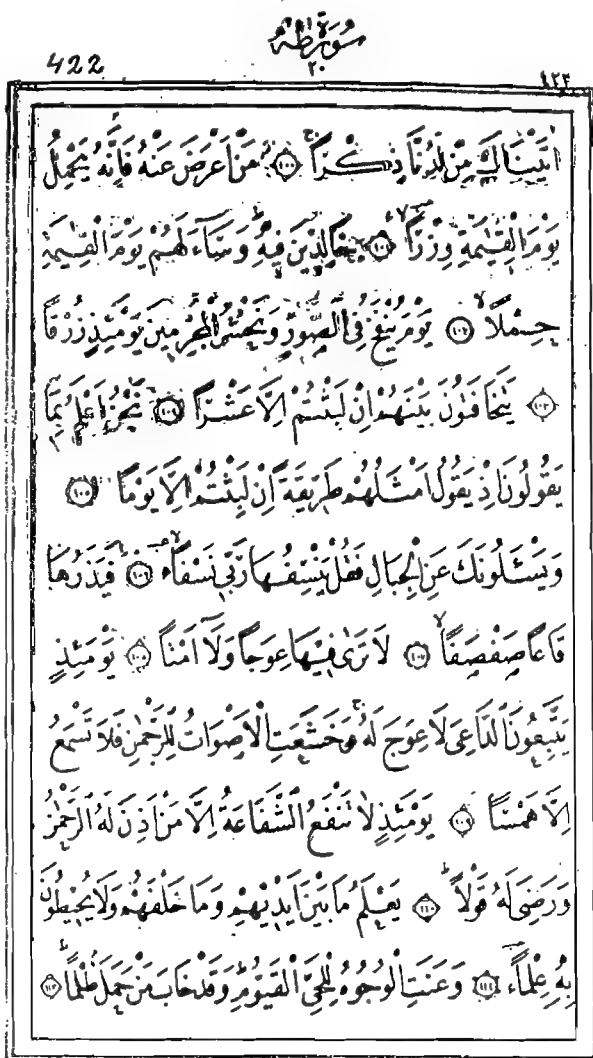 سُورَةُ طٰهٰ
٢٠
422
٤٢٢
اٰتَيْنَاكَ مِنْ لَدُنَّا ذِكْرًا ﴿١٠٠﴾ مَنْ اَعْرَضَ عَنْهُ فَاِنَّهُ يَحْمِلُ
يَوْمَ الْقِيٰمَةِ وِزْرًا ﴿١٠١﴾ خَالِدِينَ فِيهِ وَسَاۤءَ لَهُمْ يَوْمَ الْقِيٰمَةِ
حِمْلًا ﴿١٠٢﴾ يَوْمَ يُنْفَخُ فِى الصُّورِ وَنَحْشُرُ الْمُجْرِمِينَ يَوْمَئِذٍ زُرْقًا
﴿١٠٣﴾ يَتَخَافَتُونَ بَيْنَهُمْ اِنْ لَبِثْتُمْ اِلَّا عَشْرًا ﴿١٠٤﴾ نَحْنُ اَعْلَمُ بِمَا
يَقُولُونَ اِذْ يَقُولُ اَمْثَلُهُمْ طَرِيقَةً اِنْ لَبِثْتُمْ اِلَّا يَوْمًا ﴿١٠٥﴾
وَيَسْـَٔلُونَكَ عَنِ الْجِبَالِ فَقُلْ يَنْسِفُهَا رَبِّى نَسْفًا ﴿١٠٦﴾ فَيَذَرُهَا
قَاعًا صَفْصَفًا ﴿١٠٧﴾ لَا تَرٰى فِيهَا عِوَجًا وَلَاۤ اَمْتًا ﴿١٠٨﴾ يَوْمَئِذٍ
يَتَّبِعُونَ الدَّاعِىَ لَا عِوَجَ لَهُ وَخَشَعَتِ الْاَصْوَاتُ لِلرَّحْمٰنِ فَلَا تَسْمَعُ
اِلَّا هَمْسًا ﴿١٠٩﴾ يَوْمَئِذٍ لَا تَنْفَعُ الشَّفَاعَةُ اِلَّا مَنْ اَذِنَ لَهُ الرَّحْمٰنُ
وَرَضِىَ لَهُ قَوْلًا ﴿١١٠﴾ يَعْلَمُ مَا بَيْنَ اَيْدِيهِمْ وَمَا خَلْفَهُمْ وَلَا يُحِيطُونَ
بِهِ عِلْمًا ﴿١١١﴾ وَعَنَتِ الْوُجُوهُ لِلْحَىِّ الْقَيُّومِ وَقَدْ خَابَ مَنْ حَمَلَ ظُلْمًا ﴿١١٢﴾